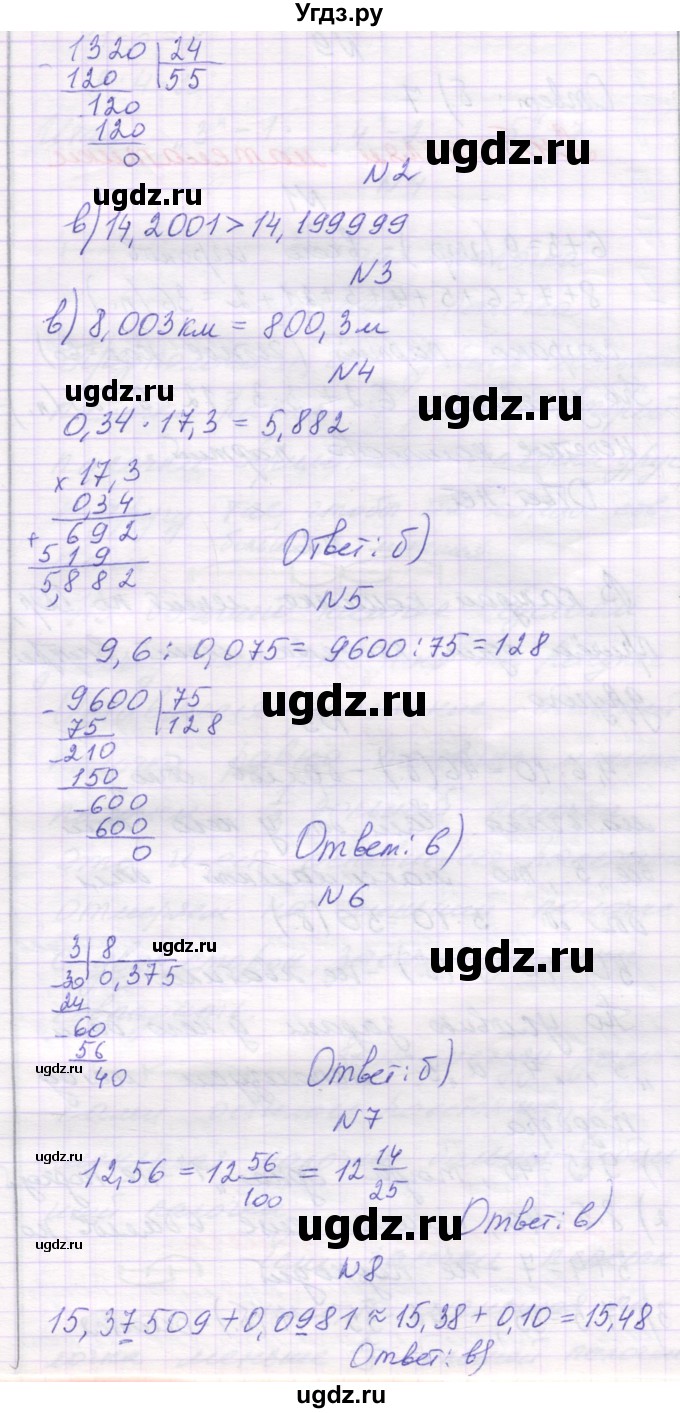 Угдз.ру
- 1320 | 24
120 | 55
120
120
0
ugdz.ru
N2
ugdz.ru
в) 14,2001 > 14,199999
N3
в) 8,003км = 800,3м
N4
ugdz.ru
ugdz.ru
0,34 · 17,3 = 5,882
× 17,3
0,34
+ 692
519
5,882
Ответ: б)
N5
9,6 : 0,075 = 9600 : 75 = 128
ugdz.ru
- 9600 | 75
75 | 128
- 210
150
- 600
600
0
Ответ: в)
N6
ugdz.ru
3 | 8
- 30 | 0,375
24
- 60
56
40
ugdz.ru
ugdz.ru
Ответ: б)
N7
ugdz.ru
12,56 = 12 56/100 = 12 14/25
ugdz.ru
Ответ: в)
ugdz.ru
N8
15,37509 + 0,0981 ≈ 15,38 + 0,10 = 15,48
Ответ: в)
ugdz.ru